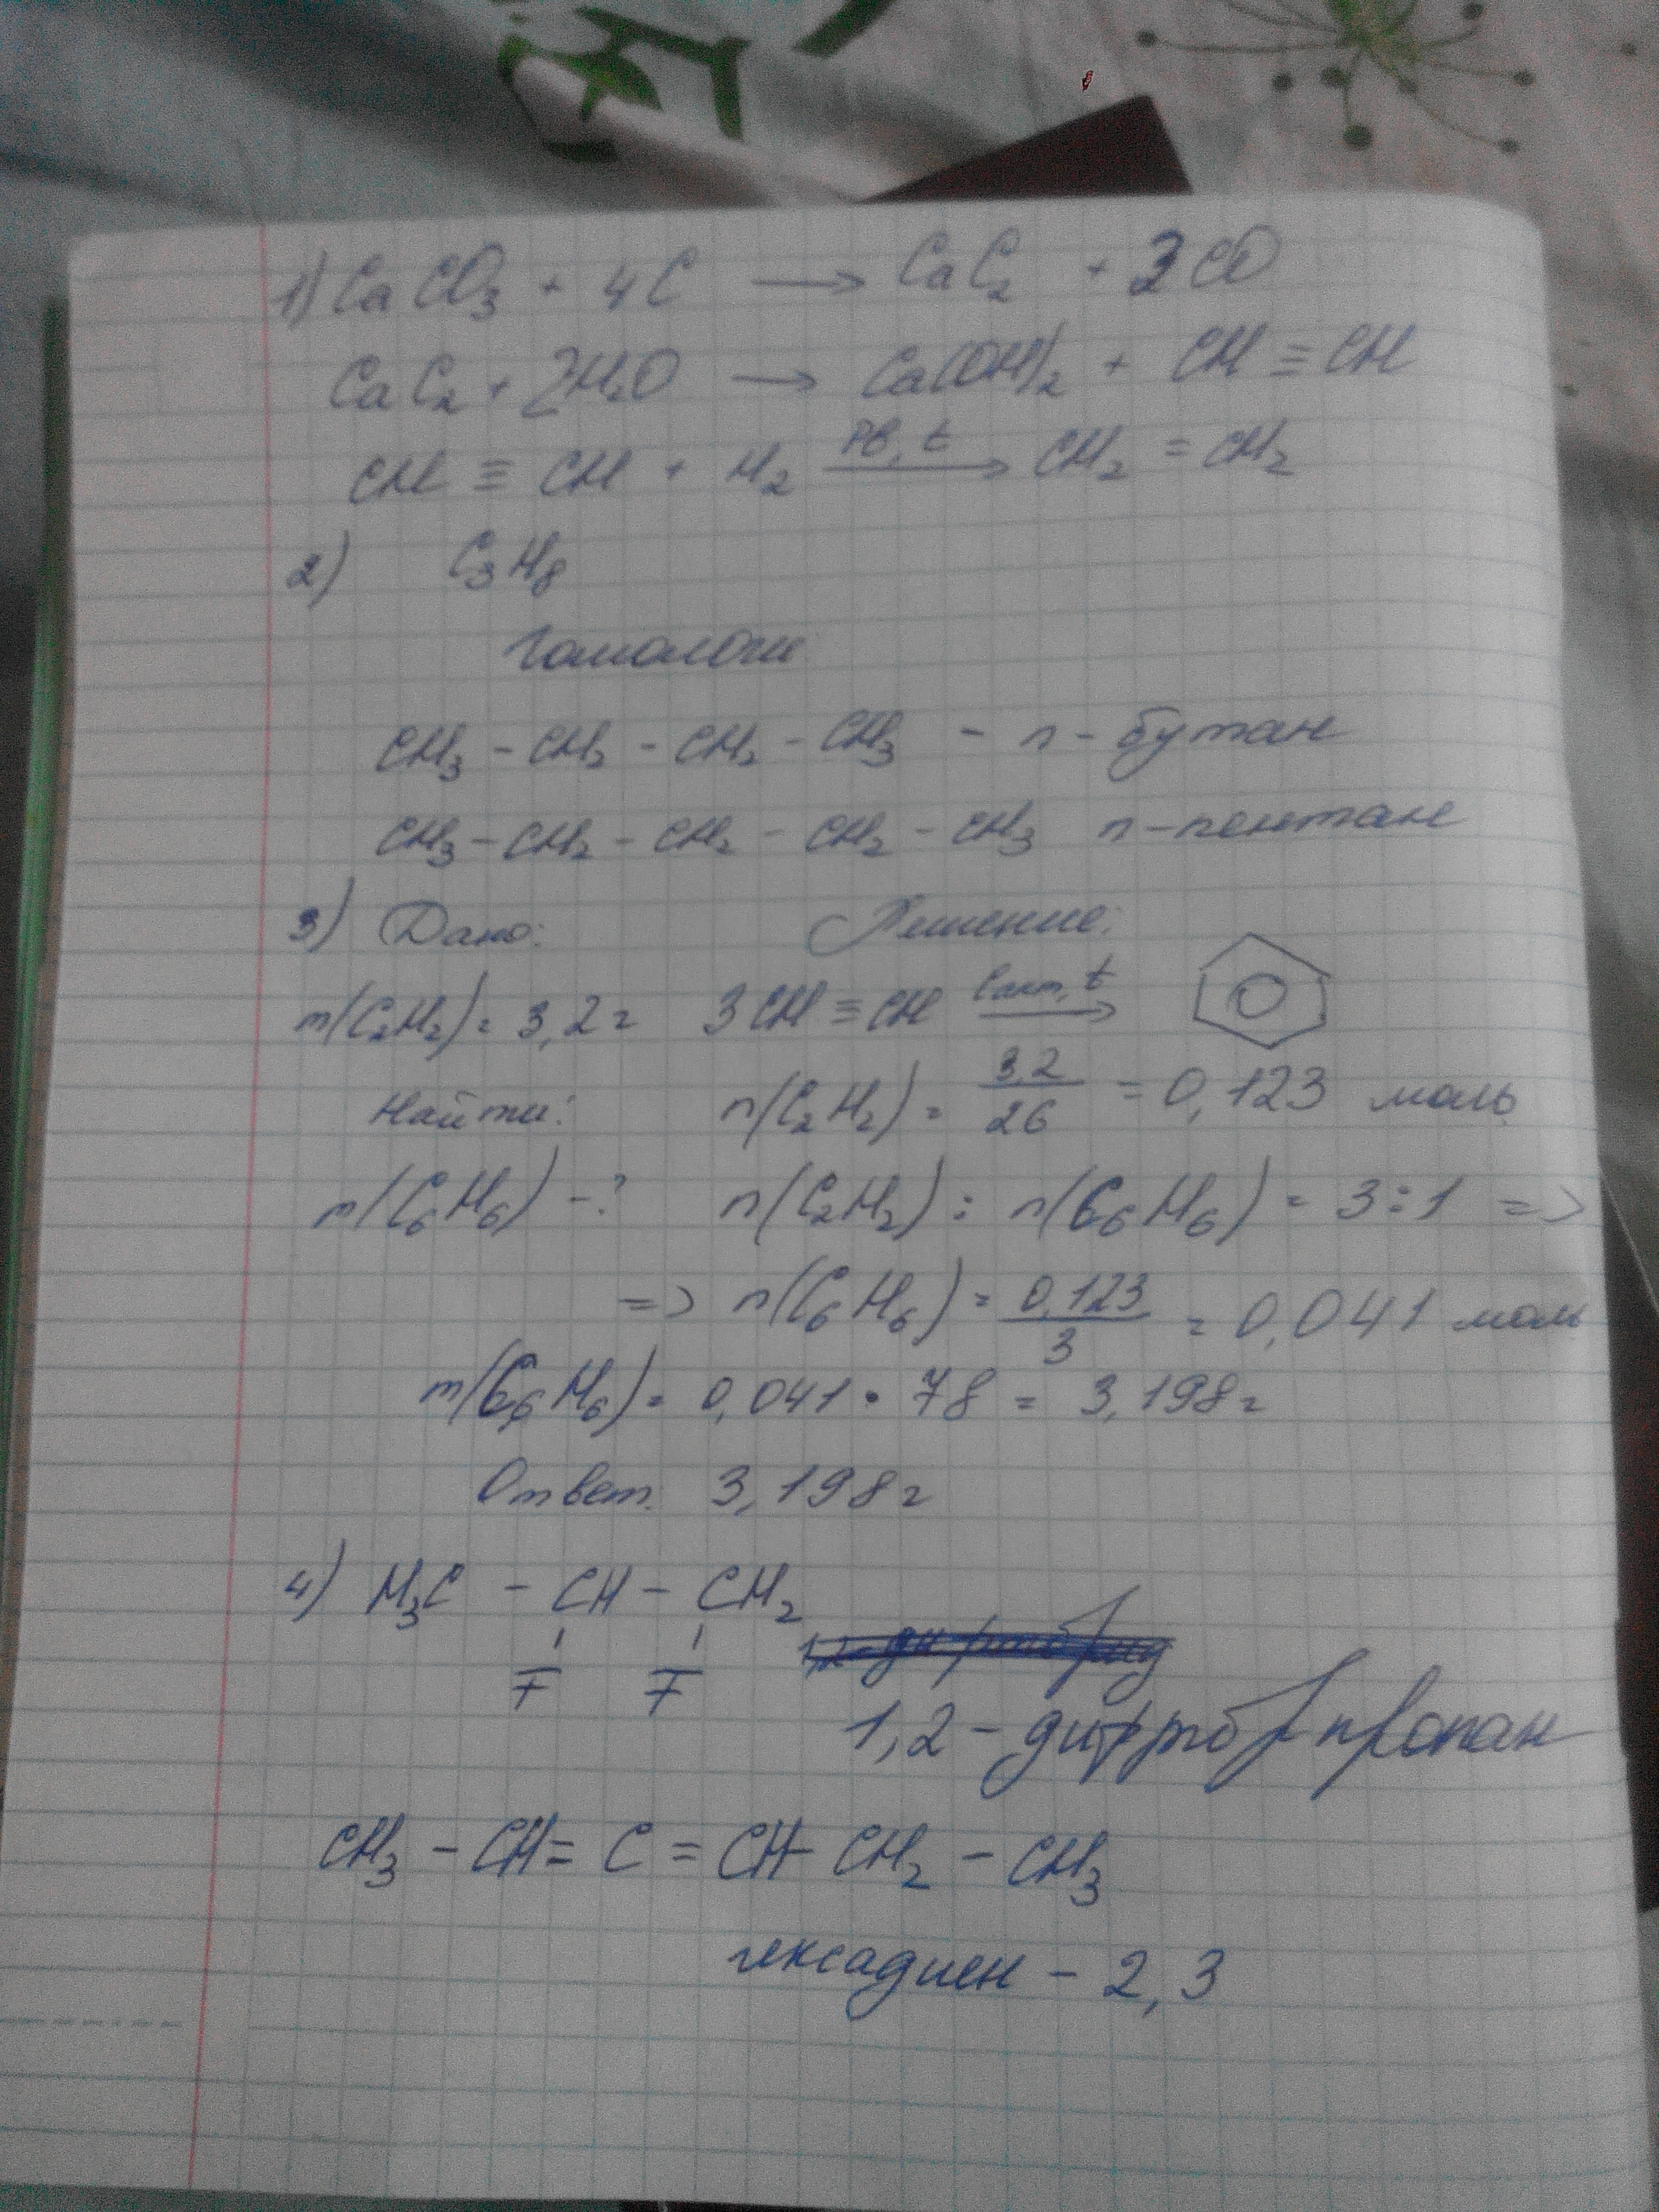 1) CaCO₃ + 4C → CaC₂ + 3CO
CaC₂ + 2H₂O → Ca(OH)₂ + CH ≡ CH
CH ≡ CH + H₂ →(Pb, t) CH₂ = CH₂
2) C₃H₈
Гомологи
CH₃ - CH₂ - CH₂ - CH₃ - n - бутан
CH₃ - CH₂ - CH₂ - CH₂ - CH₃ n-пентан
3) Дано: Решение:
m(C₂H₂) = 3,2 г 3CH ≡ CH →(Cакт, t)
Найти: n(C₂H₂) = 3,2/26 = 0,123 моль
m(C₆H₆) - ? n(C₂H₂) : n(C₆H₆) = 3:1 =>
=> n(C₆H₆) = 0,123/3 = 0,041 моль
m(C₆H₆) = 0,041 · 78 = 3,198 г
Ответ. 3,198 г
4) H₃C - CH - CH₂
F F
1,2 - дифторпропан
CH₃ - CH = C = CH - CH₂ - CH₃
гексадиен - 2,3